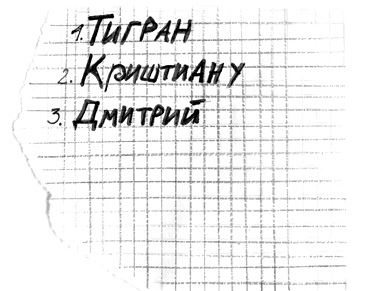 1. Тигран
2. Криштиану
3. Дмитрий